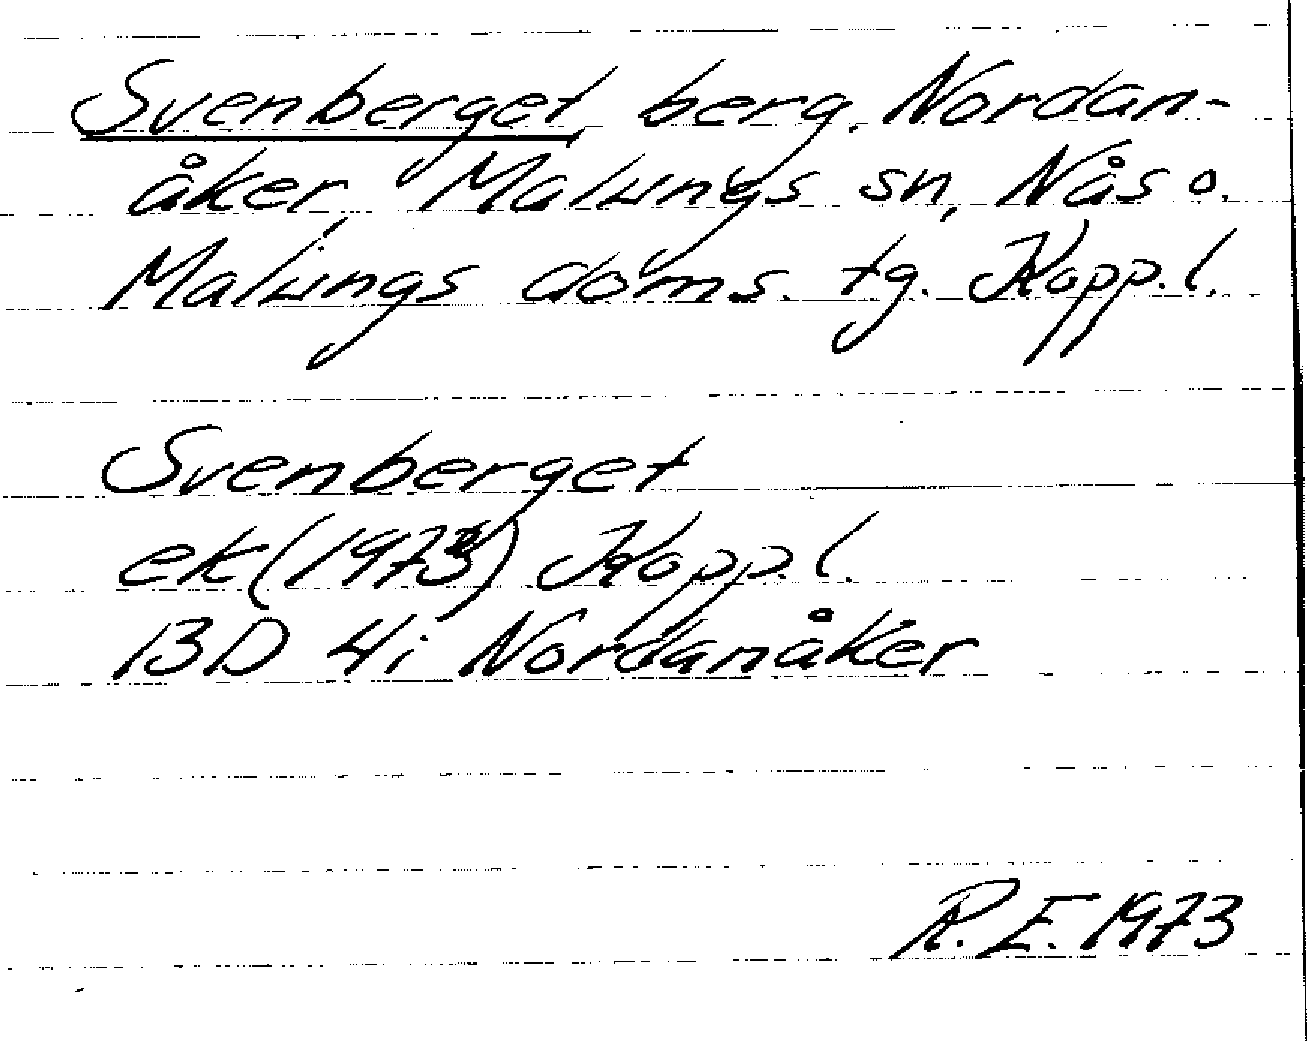 Svenberget, berg, Nordan-
åker, Malungs sn, Nås o.
Malungs doms. tg. Kopp. l.
Svenberget
ek (1973) Kopp. l.
13D 4i Nordanåker
R. E. 1973